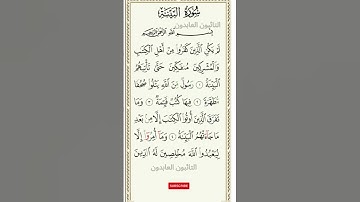 سُورَةُ الْبَيِّنَةِ
التائبون العابدون
بِسْمِ اللَّهِ الرَّحْمَٰنِ الرَّحِيمِ
لَمْ يَكُنِ الَّذِينَ كَفَرُوا مِنْ أَهْلِ الْكِتَابِ
وَالْمُشْرِكِينَ مُنفَكِّينَ حَتَّىٰ تَأْتِيَهُمُ
الْبَيِّنَةُ ١ رَسُولٌ مِّنَ اللَّهِ يَتْلُو صُحُفًا
مُّطَهَّرَةً ٢ فِيهَا كُتُبٌ قَيِّمَةٌ ٣ وَمَا
تَفَرَّقَ الَّذِينَ أُوتُوا الْكِتَابَ إِلَّا مِن بَعْدِ
مَا جَاءَتْهُمُ الْبَيِّنَةُ ٤ وَمَا أُمِرُوا إِلَّا
لِيَعْبُدُوا اللَّهَ مُخْلِصِينَ لَهُ الدِّينَ
التائبون العابدون
SUBSCRIBE